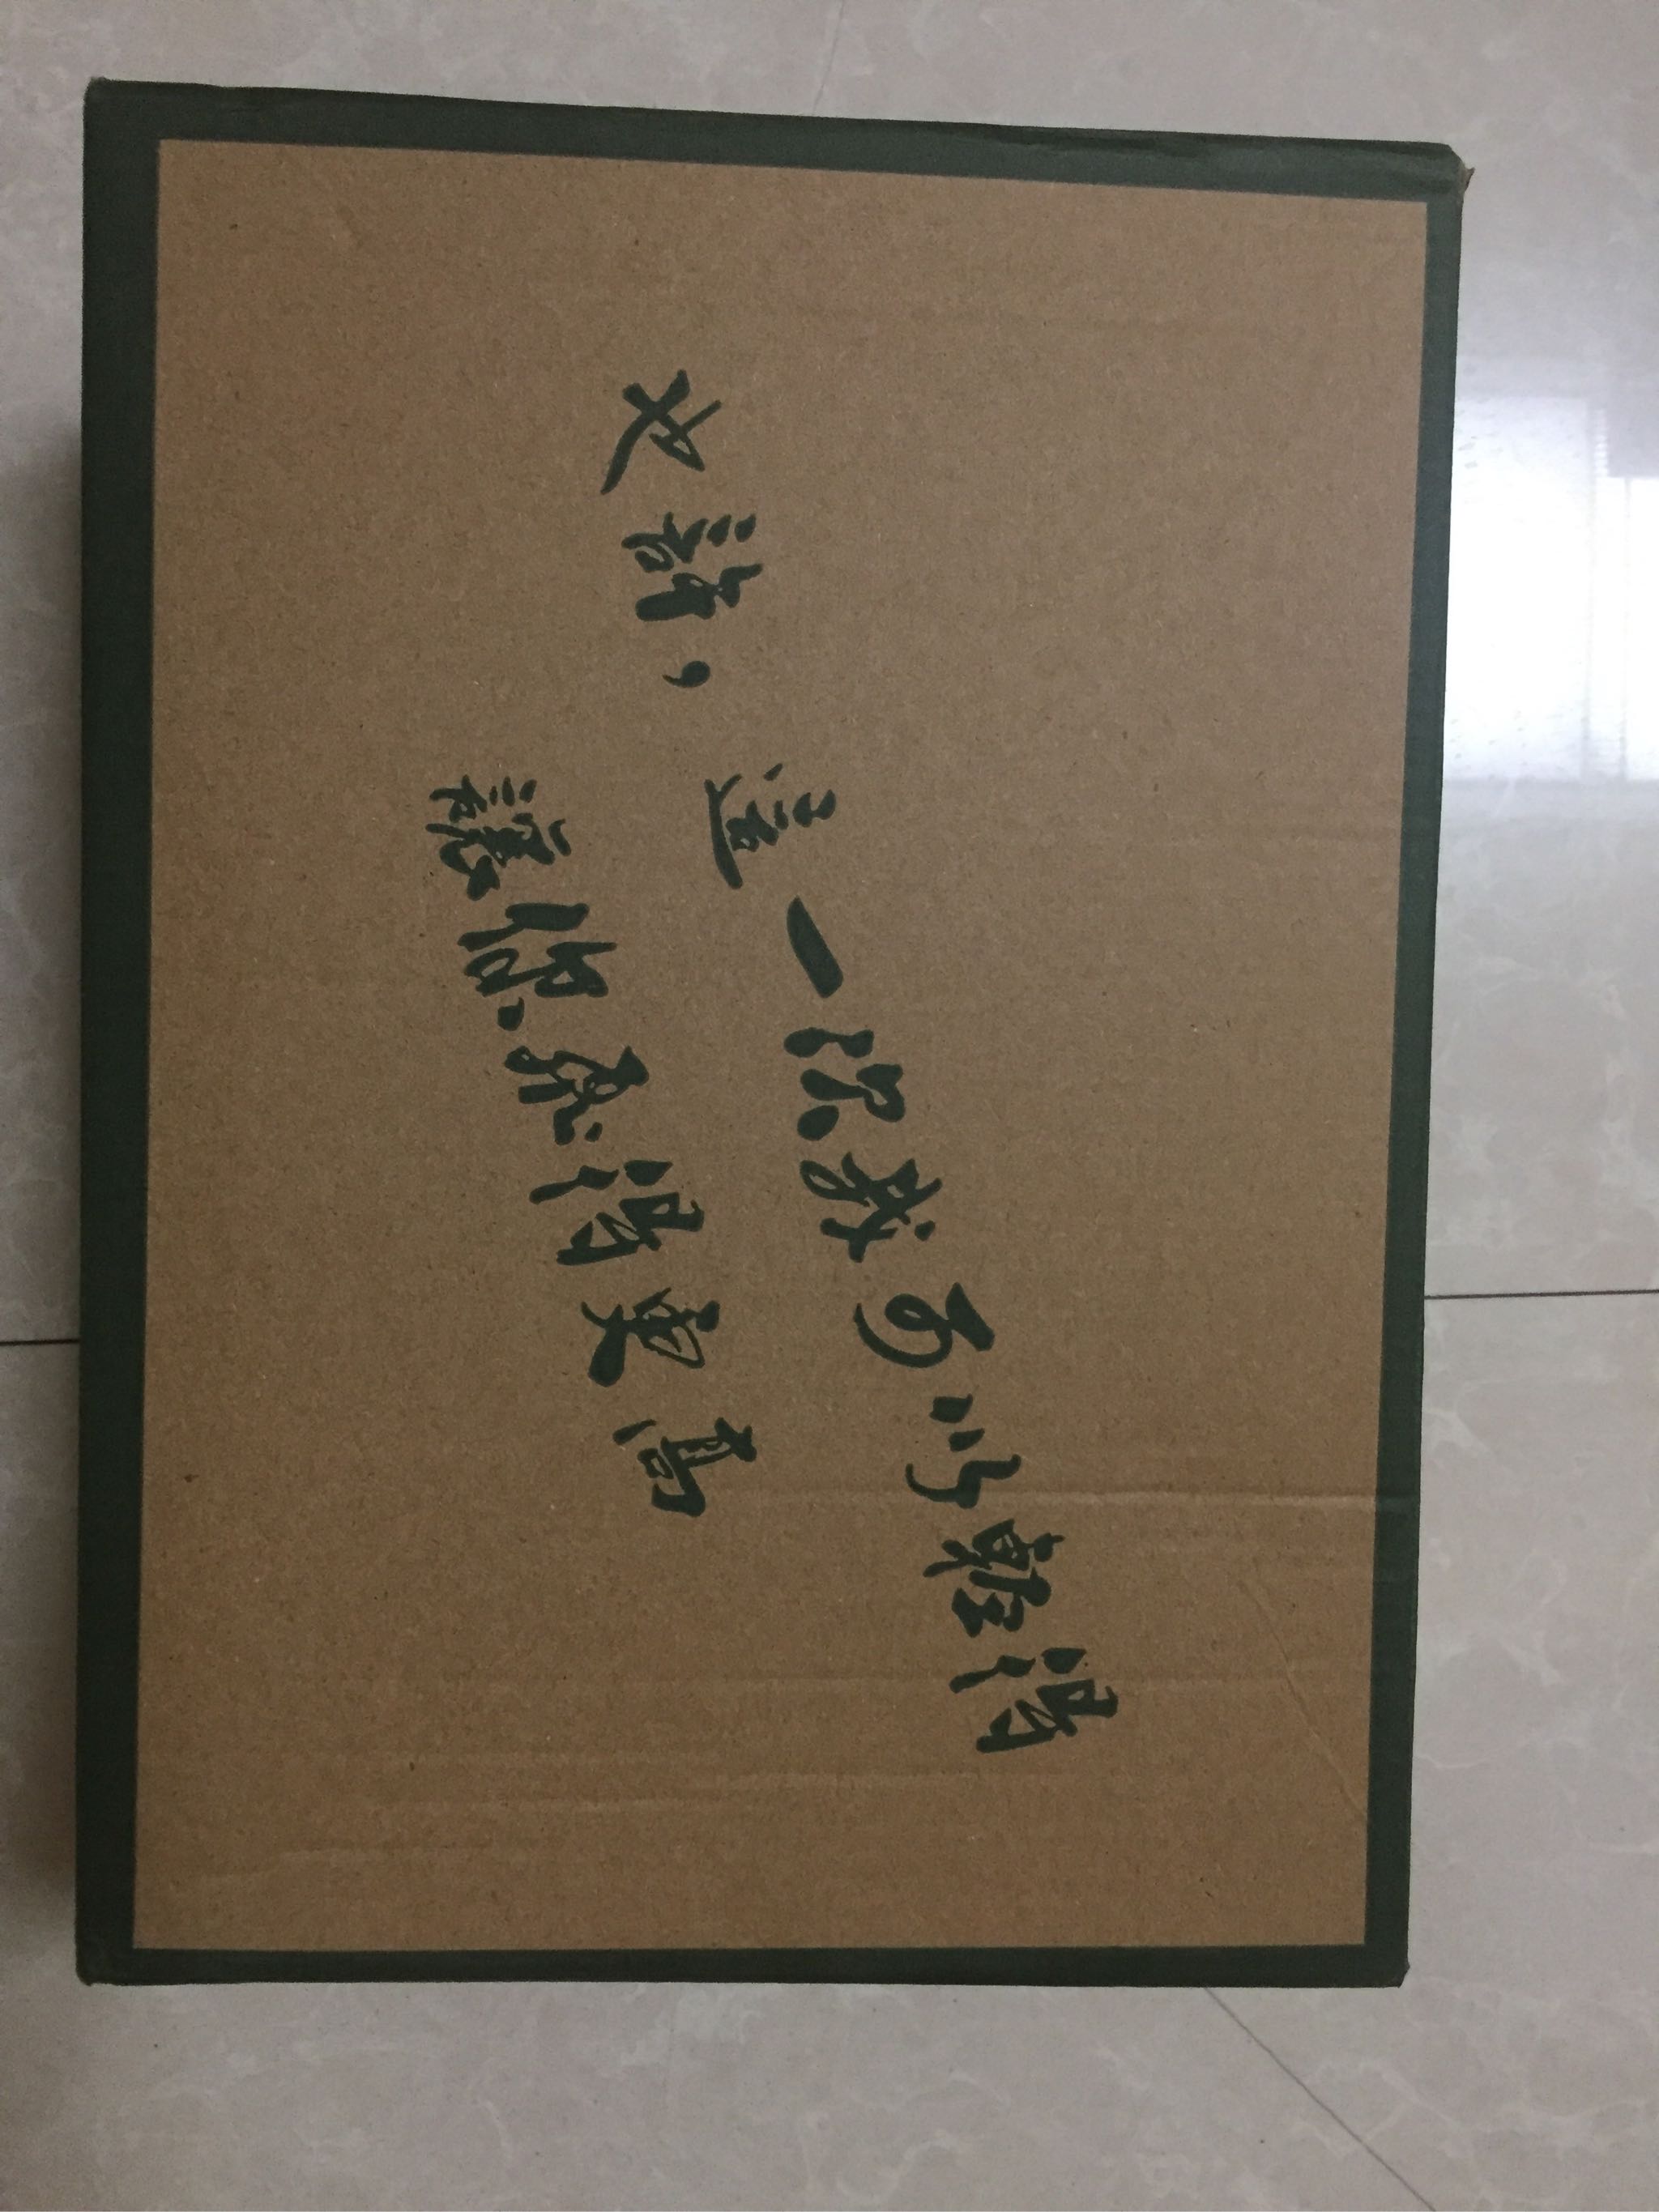 也許，這一次我可以輕得
讓你飛得更高